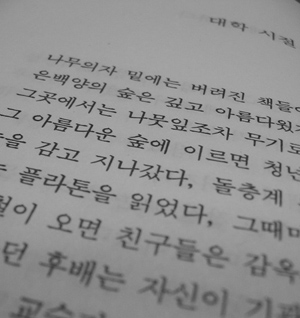 대학 시절
나무의자 밑에는 버려진 책들
은백양의 숲은 깊고 아름다웠
그곳에서는 나뭇잎조차 무기로
그 아름다운 숲에 이르면 청년
을 감고 지나갔다, 돌층계
플라톤을 읽었다, 그때마
월이 오면 친구들은 감옥
던 후배는 자신이 기관
교수